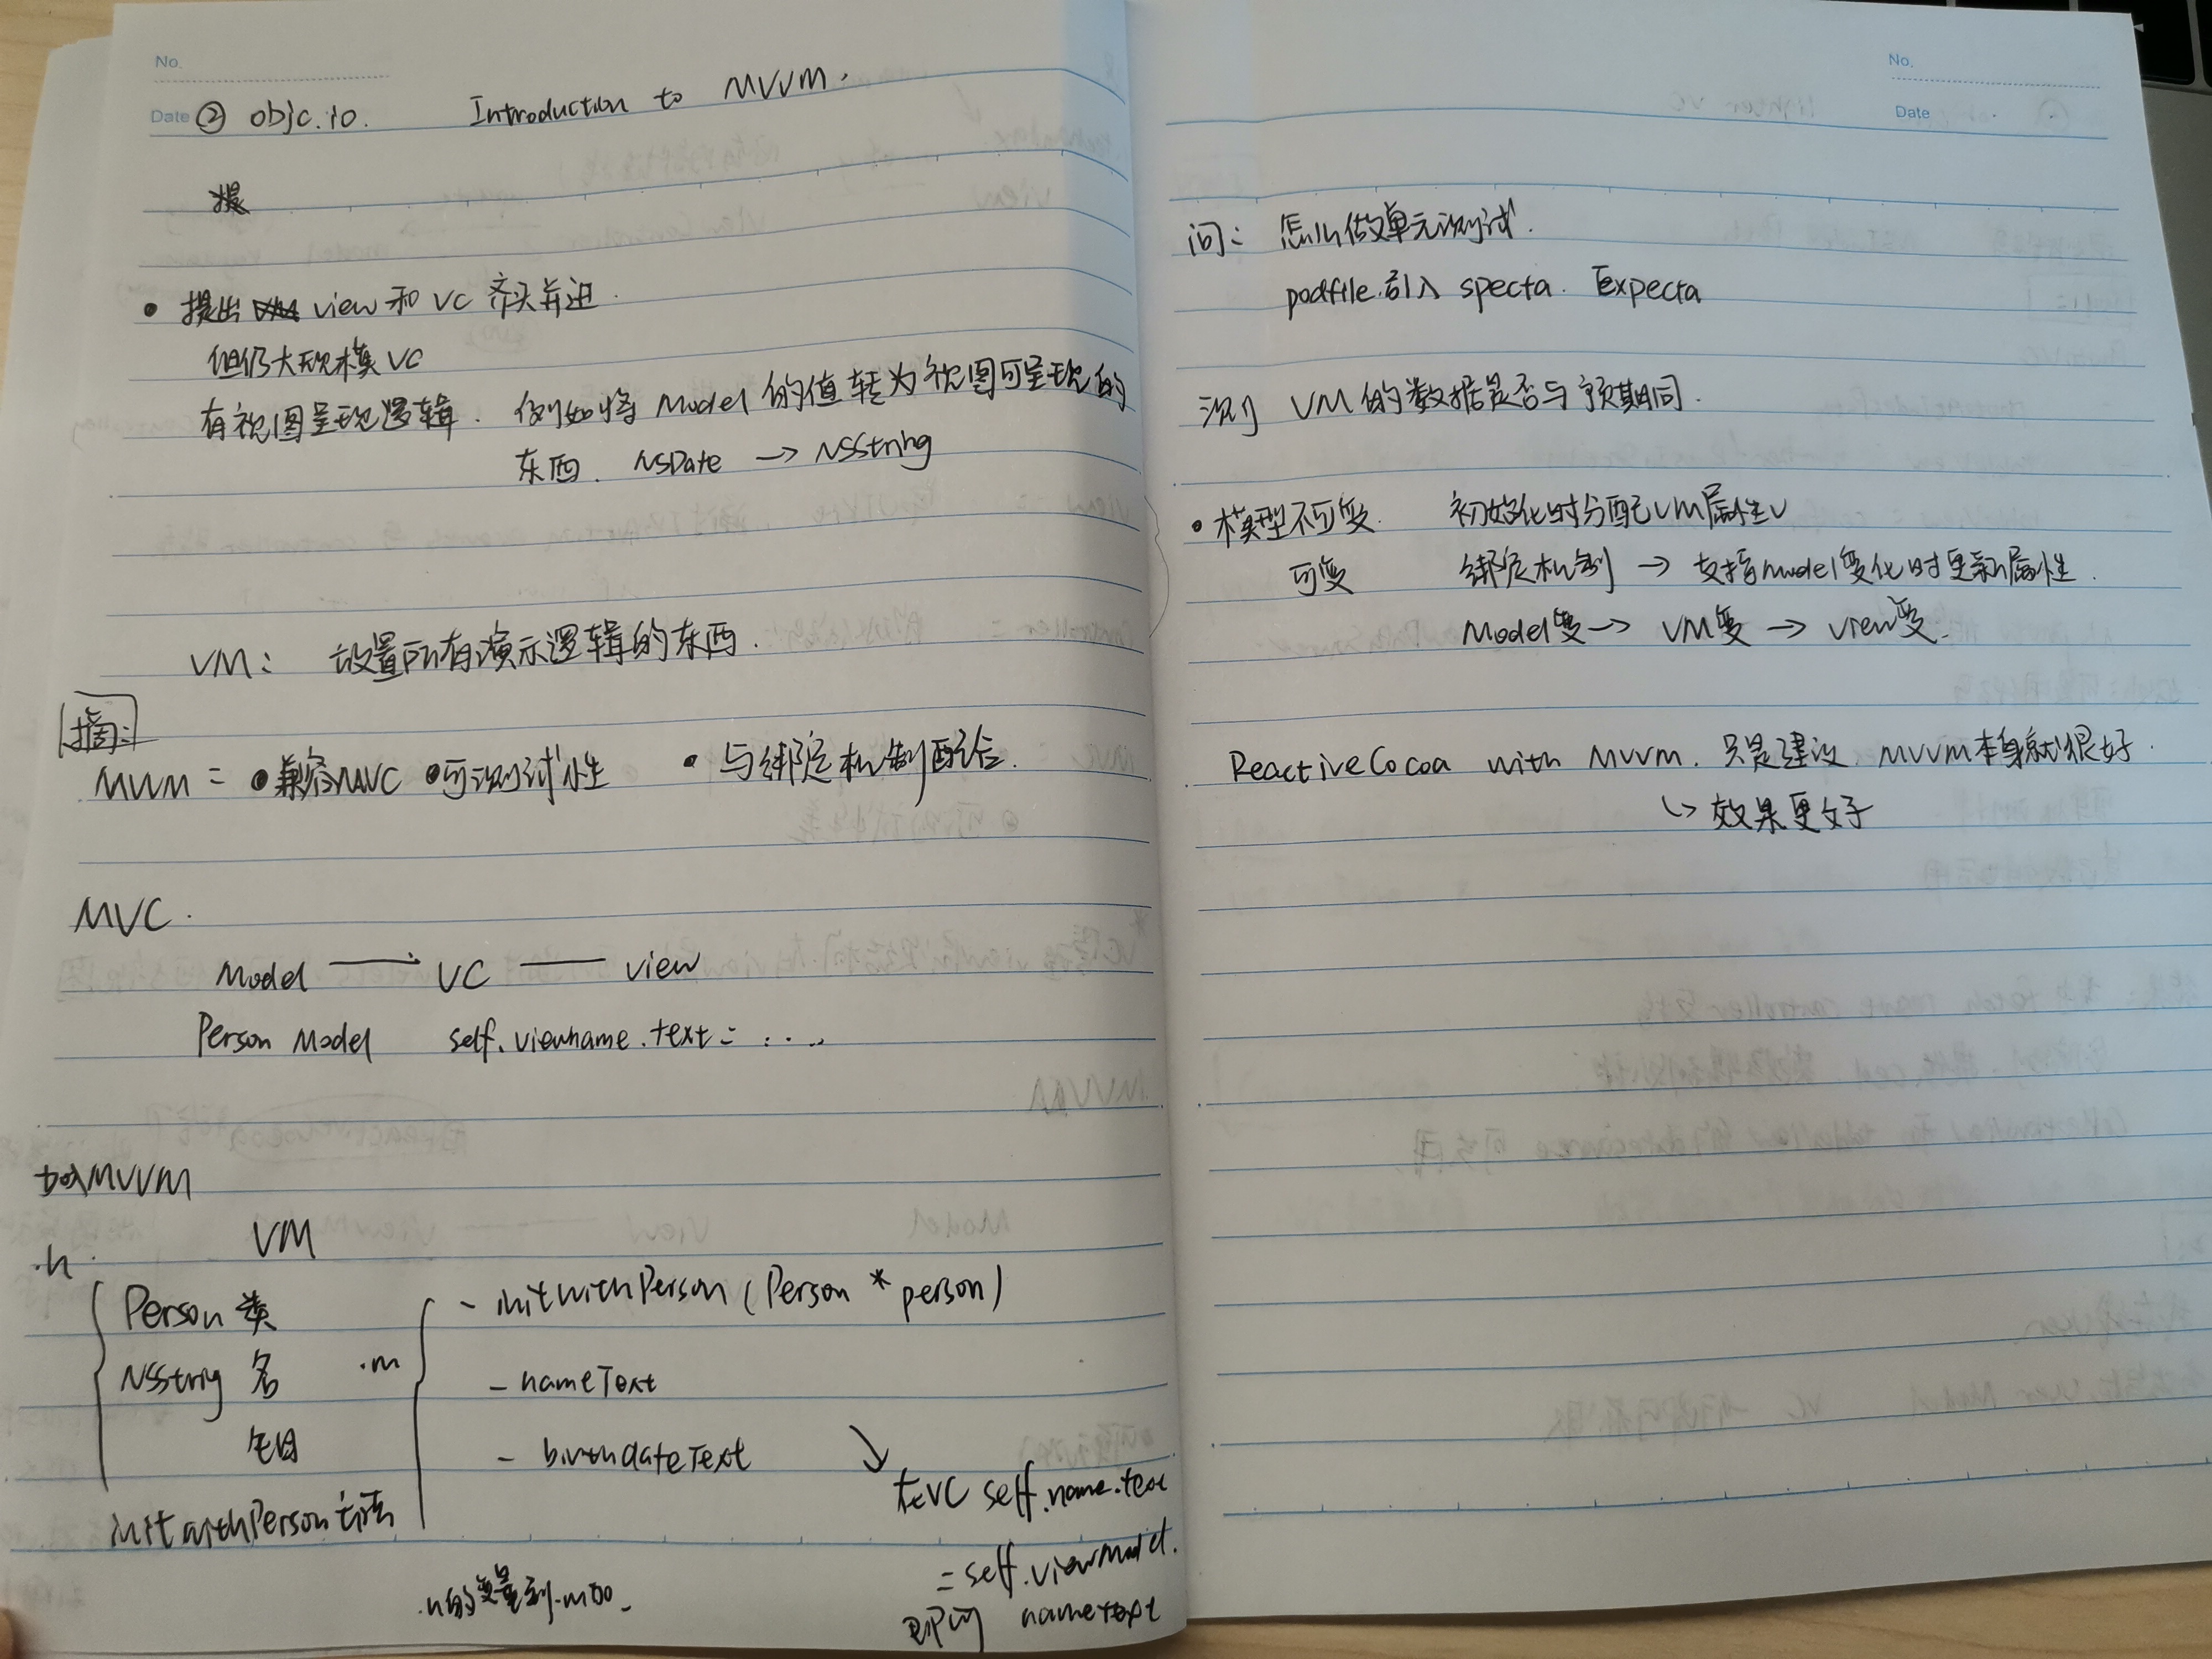 No.
Date ② objc.io. Introduction to MVVM.
• 提出 view和VC 齐头并进.
但仍大规模VC
有视图呈现逻辑. 例如将 Model 的值转为视图可呈现的
东西. NSDate → NSString
VM: 放置所有演示逻辑的东西.
摘:
MVVM = •兼容MVC •可测试性 • 与绑定机制配合.
MVC.
Model → VC — view
Person Model self.viewname.text = ....
加入MVVM
VM
.h
Person 类
NSStrig 名
生日
initwithPerson方法
.m
- initwithPerson (Person * person)
- nameText
- birthdateText
↘
在VC self.name.text
= self.viewModel.
即可 nametext
.h的变量到.m
No.
Date
问: 怎么做单元测试.
podfile.引入 specta. Expecta
测 VM的数据是否与预期同.
• 模型不可变. 初始化时分配VM属性
可变 绑定机制 → 支持model变化时更新属性.
Model变 → VM变 → view变.
ReactiveCocoa with MVVM. 只是建议. MVVM本身就很好.
↳ 效果更好